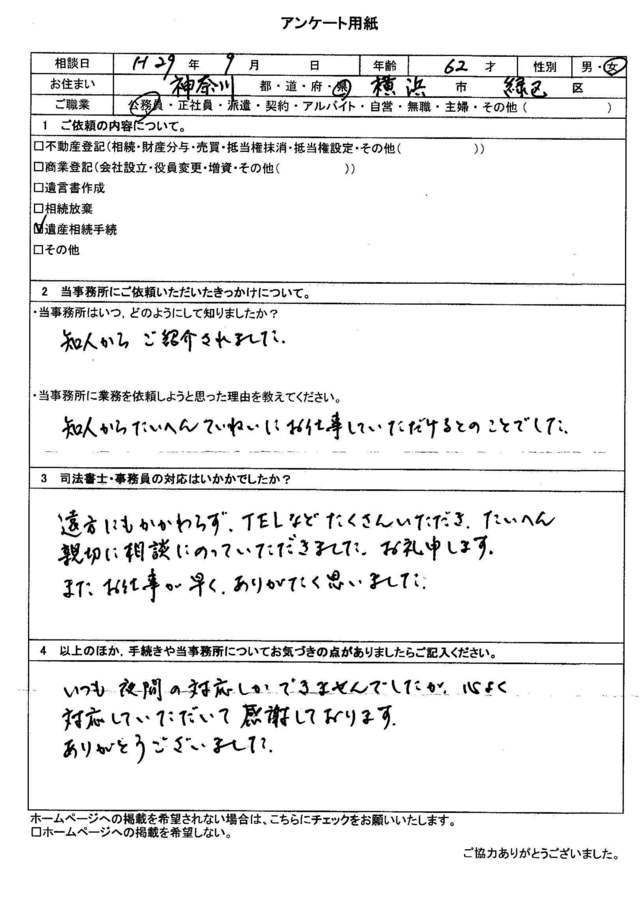 アンケート用紙
相談日 H29 年 9 月 日 年齢 62 才 性別 男・女
お住まい 神奈川 都・道・府・県 横浜 市 緑区 区
ご職業 公務員・正社員・派遣・契約・アルバイト・自営・無職・主婦・その他( )
1 ご依頼の内容について。
□不動産登記(相続・財産分与・売買・抵当権抹消・抵当権設定・その他( ))
□商業登記(会社設立・役員変更・増資・その他( ))
□遺言書作成
□相続放棄
☑遺産相続手続
□その他
2 当事務所にご依頼いただいたきっかけについて。
・当事務所はいつ,どのようにして知りましたか?
知人から ご紹介されました.
・当事務所に業務を依頼しようと思った理由を教えてください。
知人からたいへんていねいにお仕事していただけるとのことでした.
3 司法書士・事務員の対応はいかかでしたか?
遠方にもかかわらず、TELなどたくさんいただき、たいへん
親切に相談にのっていただきました。お礼申します。
また お仕事が早く、ありがたく思いました.
4 以上のほか,手続きや当事務所についてお気づきの点がありましたらご記入ください。
いつも 夜間の対応しかできませんでしたが、心よく
対応していただいて 感謝しております。
ありがとうございました.
ホームページへの掲載を希望されない場合は、こちらにチェックをお願いいたします。
□ホームページへの掲載を希望しない。
ご協力ありがとうございました。